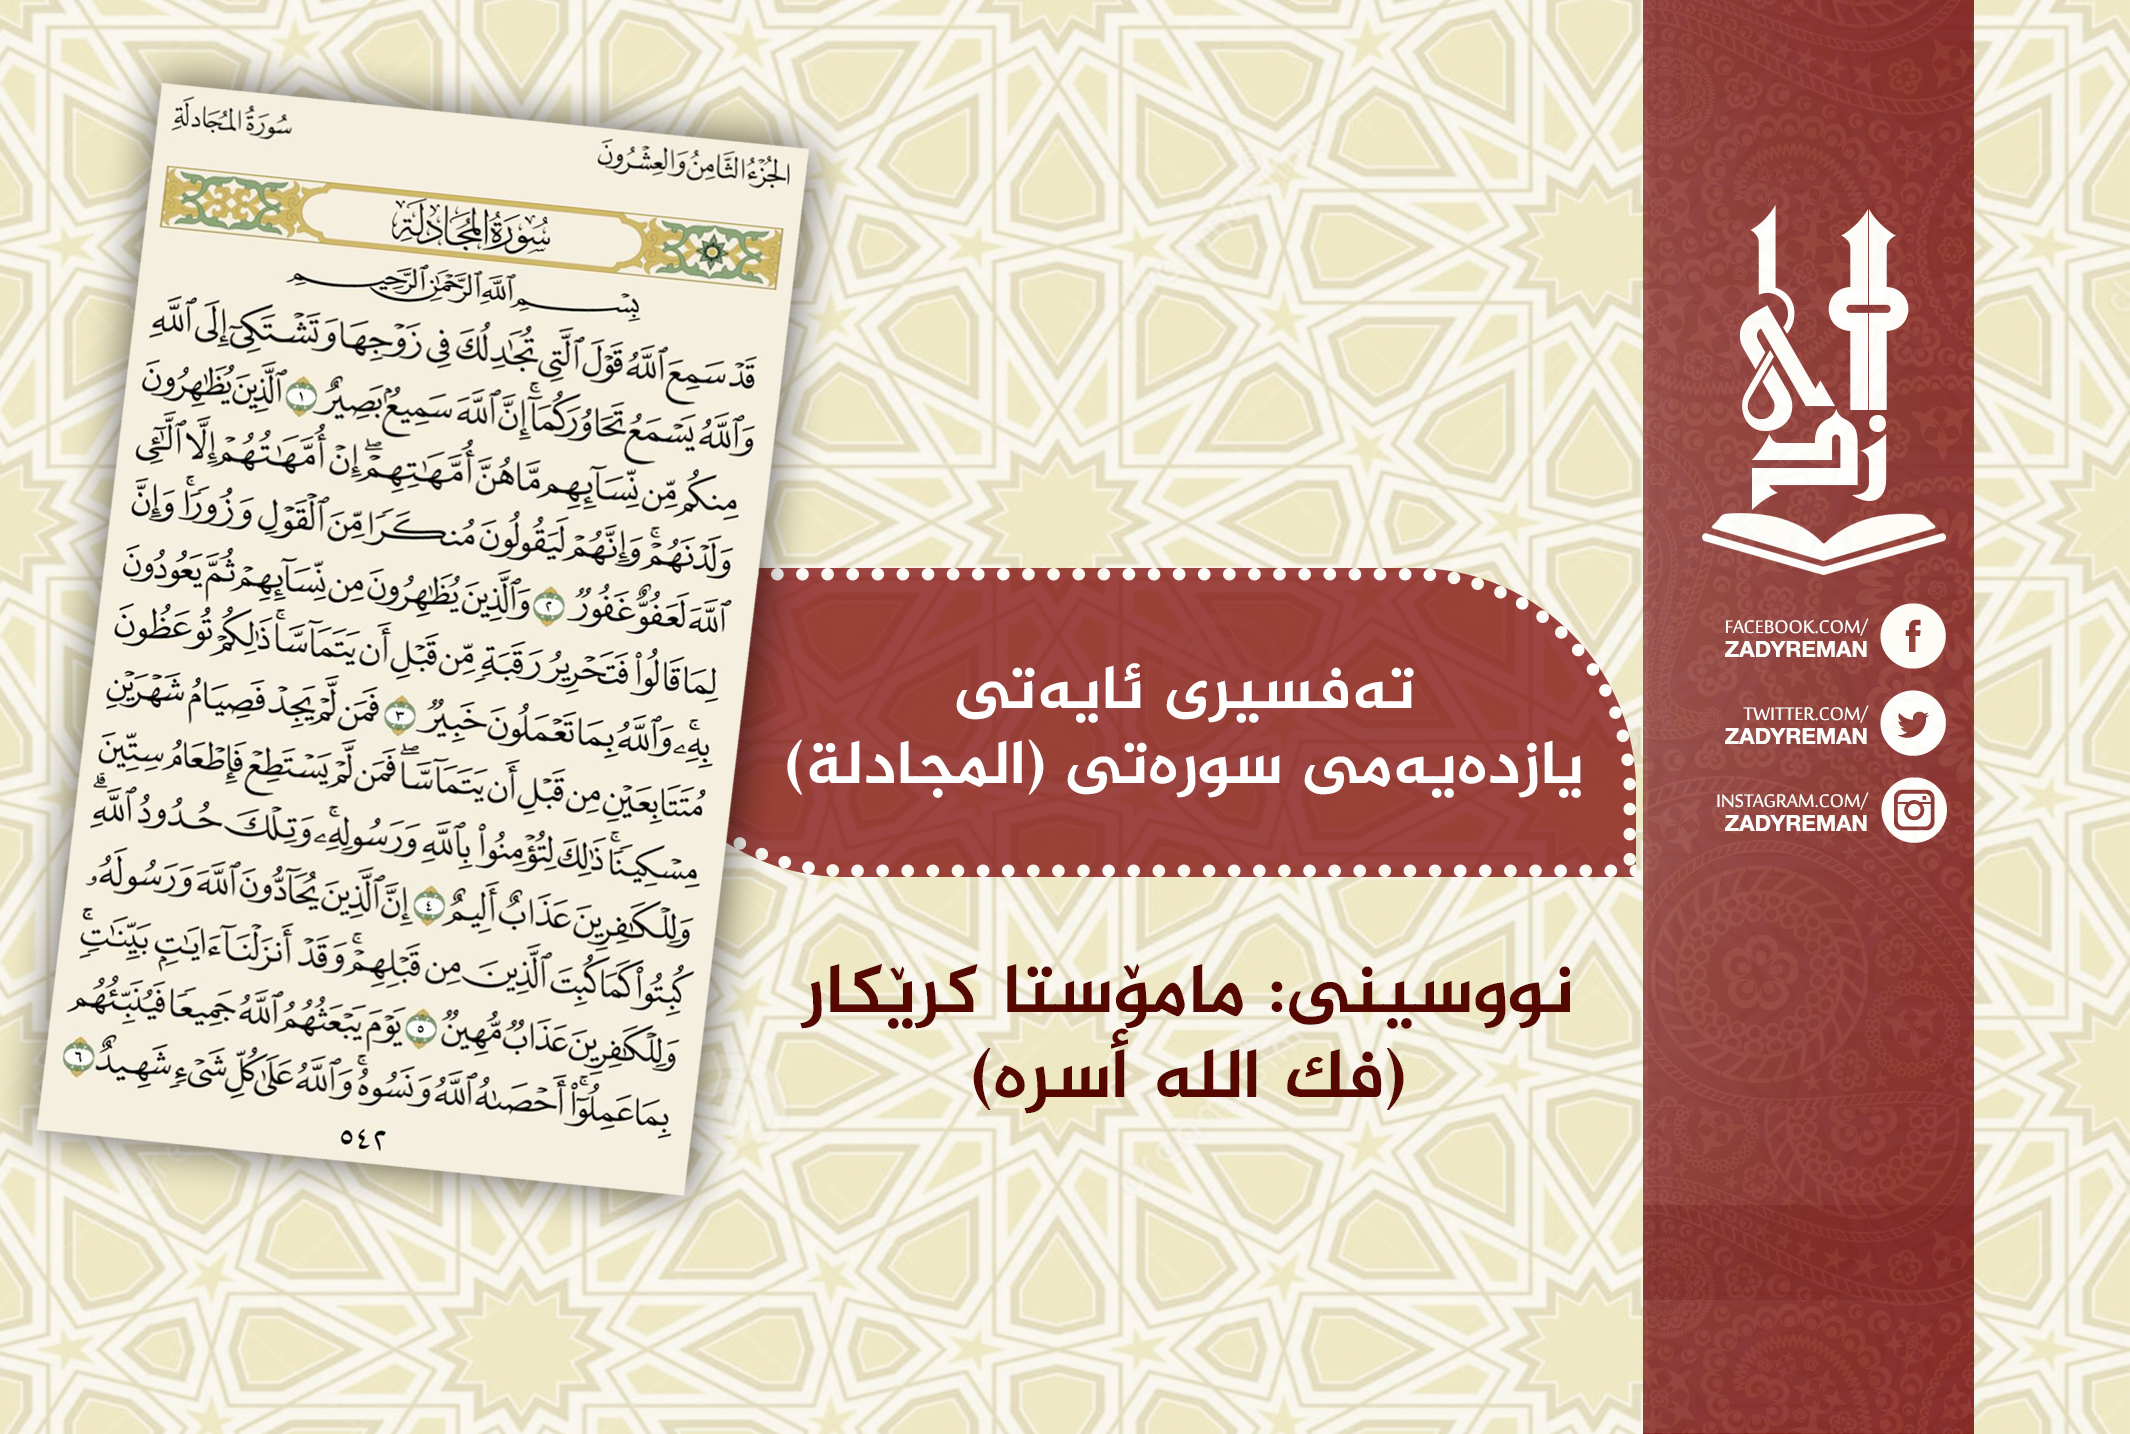 الجُزْءُ الثَّامِنُ وَالعِشْرُونَ
سُورَةُ المُجَادلَةِ
سُورَةُ المُجَادلَةِ
بِسْمِ ٱللَّهِ ٱلرَّحْمَٰنِ ٱلرَّحِيمِ
قَدْ سَمِعَ ٱللَّهُ قَوْلَ ٱلَّتِي تُجَٰدِلُكَ فِي زَوْجِهَا وَتَشْتَكِيٓ إِلَى ٱللَّهِ
وَٱللَّهُ يَسْمَعُ تَحَاوُرَكُمَآۚ إِنَّ ٱللَّهَ سَمِيعُۢ بَصِيرٌ ١ ٱلَّذِينَ يُظَٰهِرُونَ
مِنكُم مِّن نِّسَآئِهِم مَّا هُنَّ أُمَّهَٰتِهِمْۖ إِنْ أُمَّهَٰتُهُمْ إِلَّا ٱلَّٰٓـِٔي
وَلَدْنَهُمْۚ وَإِنَّهُمْ لَيَقُولُونَ مُنكَرًا مِّنَ ٱلْقَوْلِ وَزُورًاۚ وَإِنَّ
ٱللَّهَ لَعَفُوٌّ غَفُورٌ ٢ وَٱلَّذِينَ يُظَٰهِرُونَ مِن نِّسَآئِهِمْ ثُمَّ يَعُودُونَ
لِمَا قَالُوا۟ فَتَحْرِيرُ رَقَبَةٍ مِّن قَبْلِ أَن يَتَمَآسَّاۚ ذَٰلِكُمْ تُوعَظُونَ
بِهِۦۚ وَٱللَّهُ بِمَا تَعْمَلُونَ خَبِيرٌ ٣ فَمَن لَّمْ يَجِدْ فَصِيَامُ شَهْرَيْنِ
مُتَتَابِعَيْنِ مِن قَبْلِ أَن يَتَمَآسَّاۖ فَمَن لَّمْ يَسْتَطِعْ فَإِطْعَامُ سِتِّينَ
مِسْكِينًاۚ ذَٰلِكَ لِتُؤْمِنُوا۟ بِٱللَّهِ وَرَسُولِهِۦۚ وَتِلْكَ حُدُودُ ٱللَّهِۗ
وَلِلْكَٰفِرِينَ عَذَابٌ أَلِيمٌ ٤ إِنَّ ٱلَّذِينَ يُحَآدُّونَ ٱللَّهَ وَرَسُولَهُۥ
كُبِتُوا۟ كَمَا كُبِتَ ٱلَّذِينَ مِن قَبْلِهِمْۚ وَقَدْ أَنزَلْنَآ ءَايَٰتٍۭ بَيِّنَٰتٍۚ
وَلِلْكَٰفِرِينَ عَذَابٌ مُّهِينٌ ٥ يَوْمَ يَبْعَثُهُمُ ٱللَّهُ جَمِيعًا فَيُنَبِّئُهُم
بِمَا عَمِلُوٓا۟ۚ أَحْصَىٰهُ ٱللَّهُ وَنَسُوهُۚ وَٱللَّهُ عَلَىٰ كُلِّ شَىْءٍ شَهِيدٌ ٦
٥٤٢
تەفسیری ئایەتی
یازدەیەمی سورەتی (المجادلة)
نووسینی: مامۆستا کرێکار
(فك الله أسره)
FACEBOOK.COM/
ZADYREMAN
TWITTER.COM/
ZADYREMAN
INSTAGRAM.COM/
ZADYREMAN